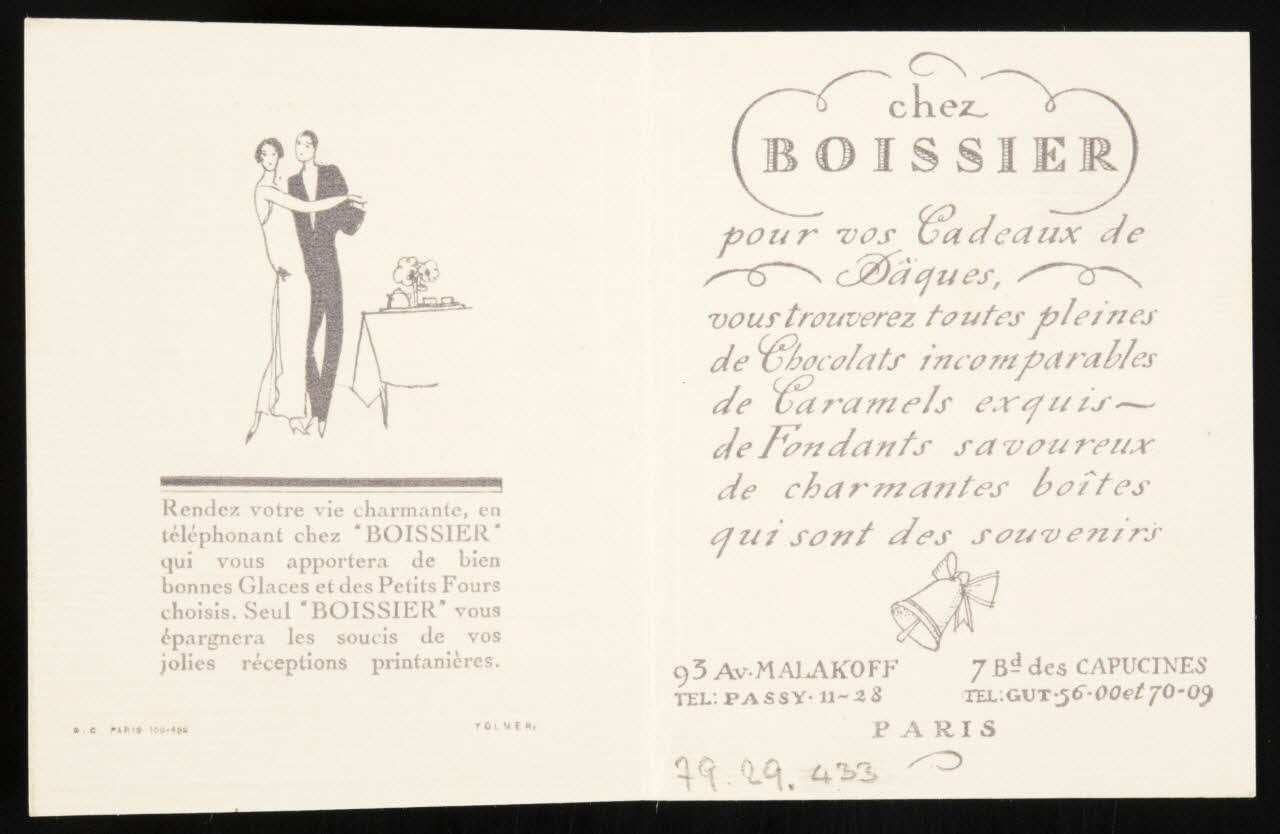 Rendez votre vie charmante, en
téléphonant chez "BOISSIER"
qui vous apportera de bien
bonnes Glaces et des Petits Fours
choisis. Seul "BOISSIER" vous
épargnera les soucis de vos
jolies réceptions printanières.
PARIS
YOLMER
chez
BOISSIER
pour vos Cadeaux de
Pâques,
vous trouverez toutes pleines
de Chocolats incomparables
de Caramels exquis —
de Fondants savoureux
de charmantes boîtes
qui sont des souvenirs
93 Av. MALAKOFF
TEL: PASSY. 11-28
7 Bd des CAPUCINES
TEL: GUT. 56-00 et 70-09
PARIS
79.29.433